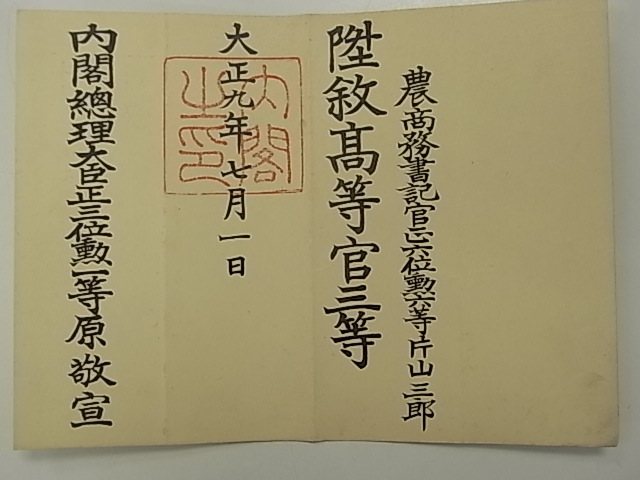 農商務書記官正六位勲六等片山三郎
陞敘高等官三等
大正九年七月一日
内閣之印
内閣總理大臣正三位勲一等原敬宣